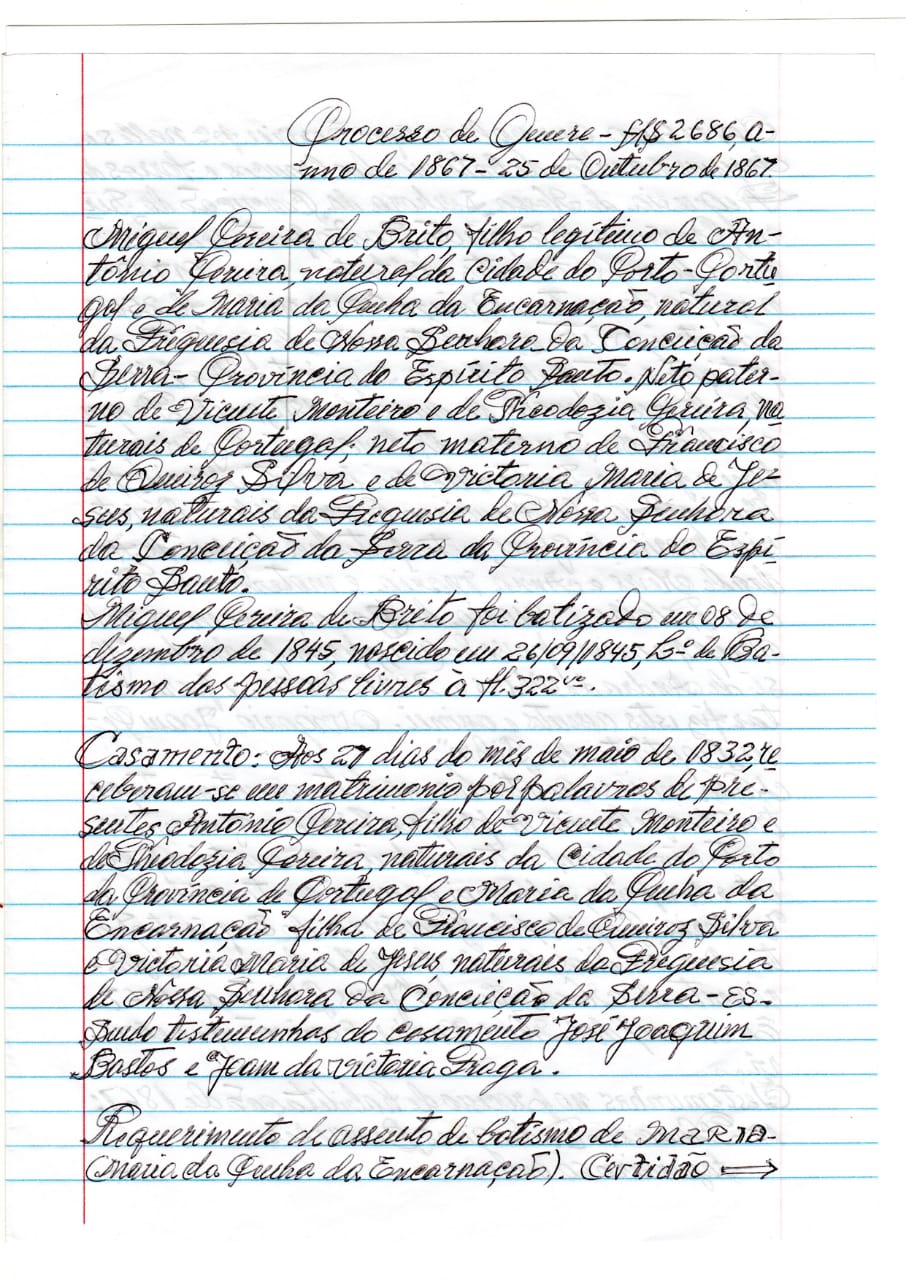 Processo de Genere - fls 2686, A-
nno de 1867 - 25 de Outubro de 1867.
Miguel Pereira de Brito, filho legítimo de An-
tônio Pereira, natural da Cidade do Porto - Portu
gal e de Maria da Penha da Encarnação, natural
da Freguesia de Nossa Senhora da Conceição da
Serra - Província do Espírito Santo. Neto pater-
no de Vicente Monteiro e de Theodozia Pereira, na
turais de Portugal; neto materno de Francisco
de Queiroz Silva e de Victoria Maria de Je-
sus, naturais da Freguesia de Nossa Senhora
da Conceição da Serra da Província do Espí-
rito Santo.
Miguel Pereira de Brito foi batizado em 08 de
dezembro de 1845, nascido em 26/09/1845, Lº de Ba-
tismo das pessoas livres à fl. 322vº.
Casamento: Aos 27 dias do mês de maio de 1832, re
ceberam-se em matrimonio por palavras de pre-
sentes Antônio Pereira, filho de Vicente Monteiro e
de Theodozia Pereira, naturais da Cidade do Porto
da Província de Portugal e Maria da Penha da
Encarnação filha de Francisco de Queiroz Silva
e Victoria Maria de Jesus naturais da Freguesia
de Nossa Senhora da Conceição da Serra - ES.
Sendo testemunhas do casamento José Joaquim
Bastos e Joam da Victoria Fraga.
Requerimento de assento de batismo de MARIA
(Maria da Penha da Encarnação). Certidão →